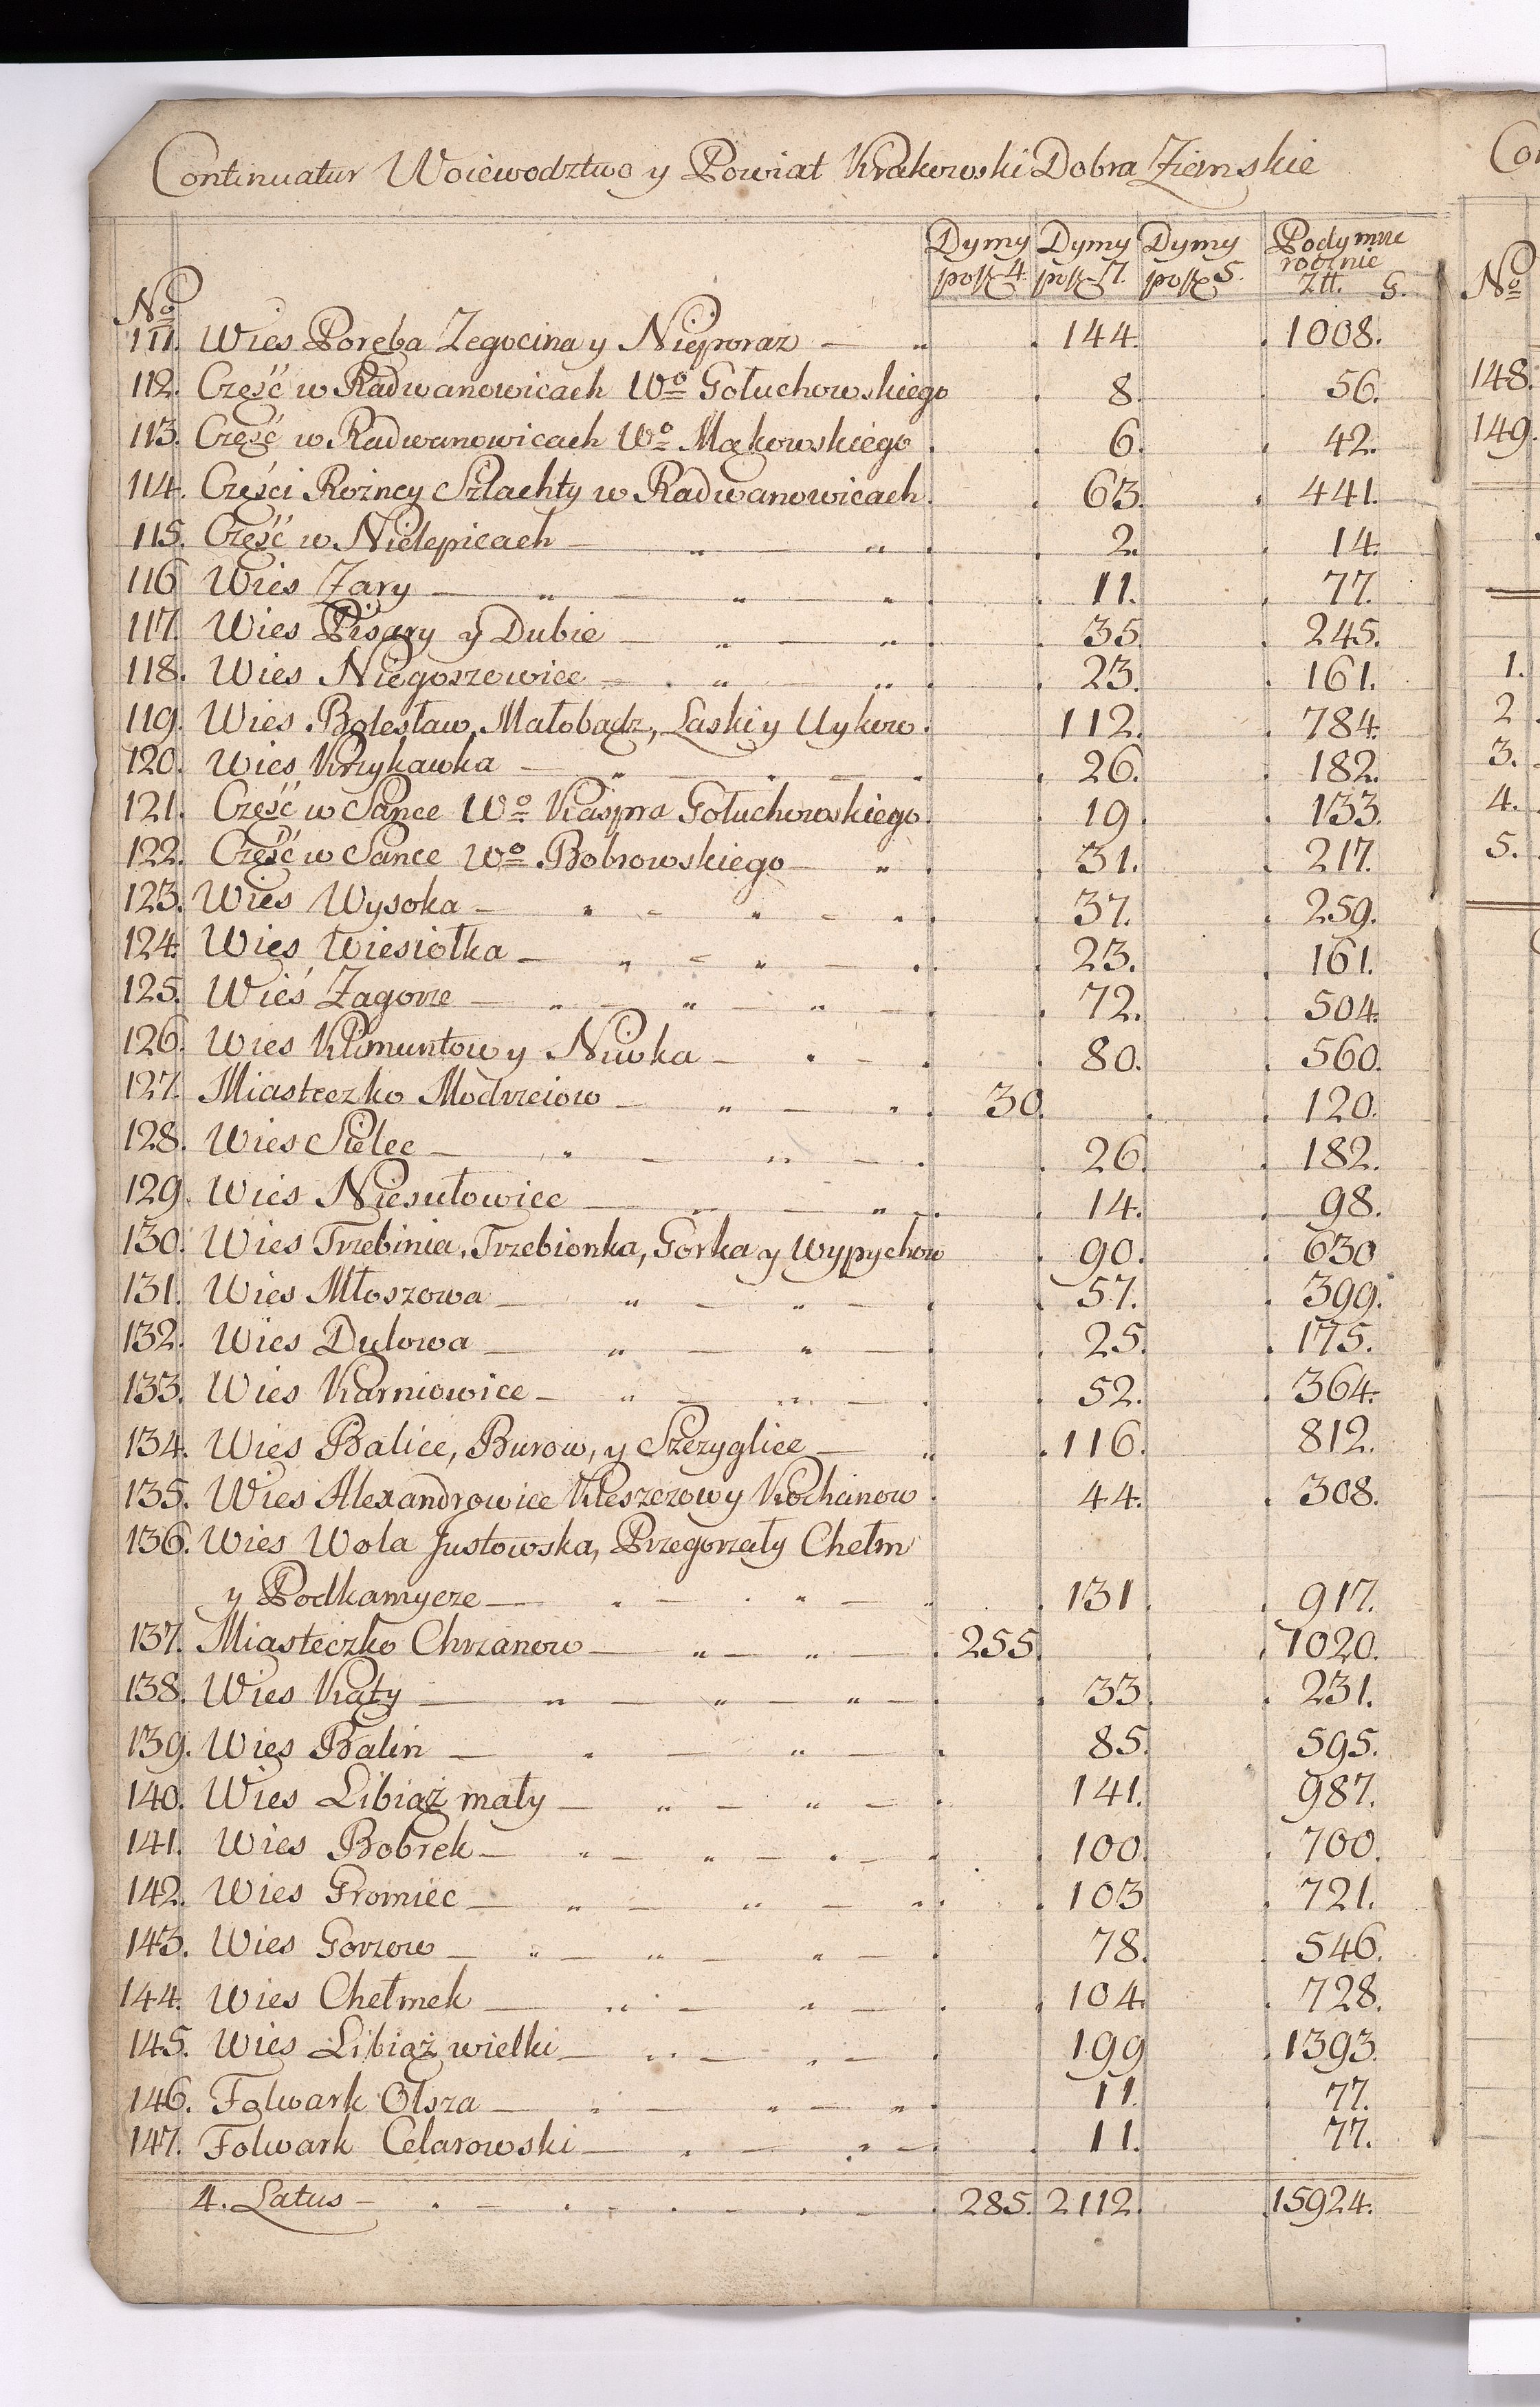 Continuatur Woiewodztwo y Powiat Krakowski Dobra Ziemskie
No Dymy po zł 4. Dymy po zł 7. Dymy po zł 5. Podymne rocznie Złt. g.
111. Wies Poręba Zegocina y Nieporaz 144. 1008.
112. Część w Radwanowicach Wo Gołuchowskiego 8. 56.
113. Część w Radwanowicach Wo Mąkowskiego 6. 42.
114. Części Rożney Szlachty w Radwanowicach 63. 441.
115. Część w Nielepicach 2. 14.
116 Wies Zary 11. 77.
117. Wies Pisary y Dubie 35. 245.
118. Wies Niegoszowice 23. 161.
119. Wies Bolesław, Małobądz, Laski y Uykow 112. 784.
120. Wies Krzykawka 26. 182.
121. Część w Sance Wo Kaspra Gołuchowskiego 19. 133.
122. Część w Sance Wo Bobrowskiego 31. 217.
123. Wies Wysoka 37. 259.
124. Wies Wiesiołka 23. 161.
125. Wieś Zagorze 72. 504.
126. Wies Klimuntow y Niwka 80. 560.
127. Miasteczko Modrzeiow 30. 120.
128. Wies Sielec 26. 182.
129. Wies Niesułowice 14. 98.
130. Wies Trzebinia, Trzebionka, Gorka y Wypychow 90. 630
131. Wies Młoszowa 57. 399.
132. Wies Dulowa 25. 175.
133. Wies Karniowice 52. 364.
134. Wies Balice, Burow, y Szczyglice 116. 812.
135. Wies Alexandrowice Kleszczow y Kochanow 44. 308.
136. Wies Wola Justowska, Przegorzały Chełm
y Podkamycze 131. 917.
137. Miasteczko Chrzanow 255. 1020.
138. Wies Kąty 33. 231.
139. Wies Balin 85. 595.
140. Wies Libiąż mały 141. 987.
141. Wies Bobrek 100. 700.
142. Wies Gromiec 103 721.
143. Wies Gorzow 78. 546.
144. Wies Chełmek 104. 728.
145. Wies Libiąż wielki 199 1393.
146. Folwark Olsza 11. 77.
147. Folwark Celarowski 11. 77.
4. Latus 285. 2112. 15924.
Con
No
148.
149.
1.
2
3.
4.
5.